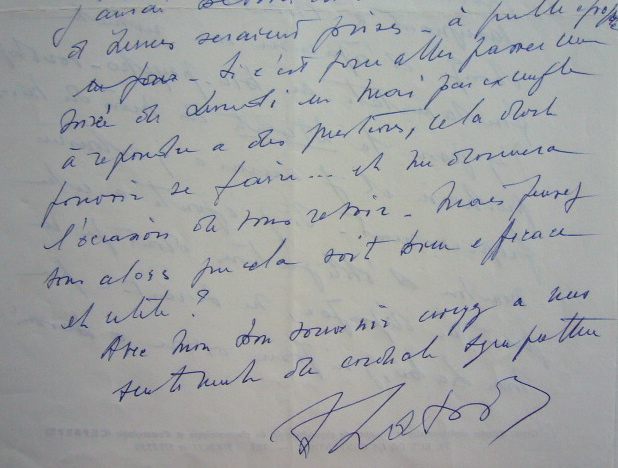 J'aurai
et seraient prises - à quelle époque
- Si c'est pour aller passer une
soirée de Lundi en Mai par exemple
à répondre a des questions, cela doit
pouvoir se faire... et me donnera
l'occasion de vous revoir - Mais pensez
vous alors que cela soit bien efficace
et utile ?
Avec mon bon souvenir croyez a mes
sentiments de cordiale sympathie